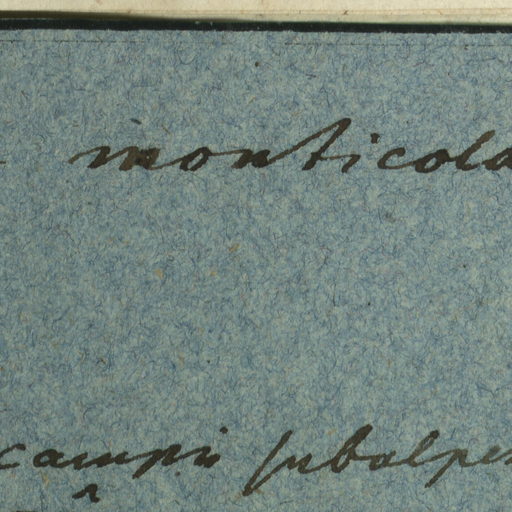 monticola
campis subalpe